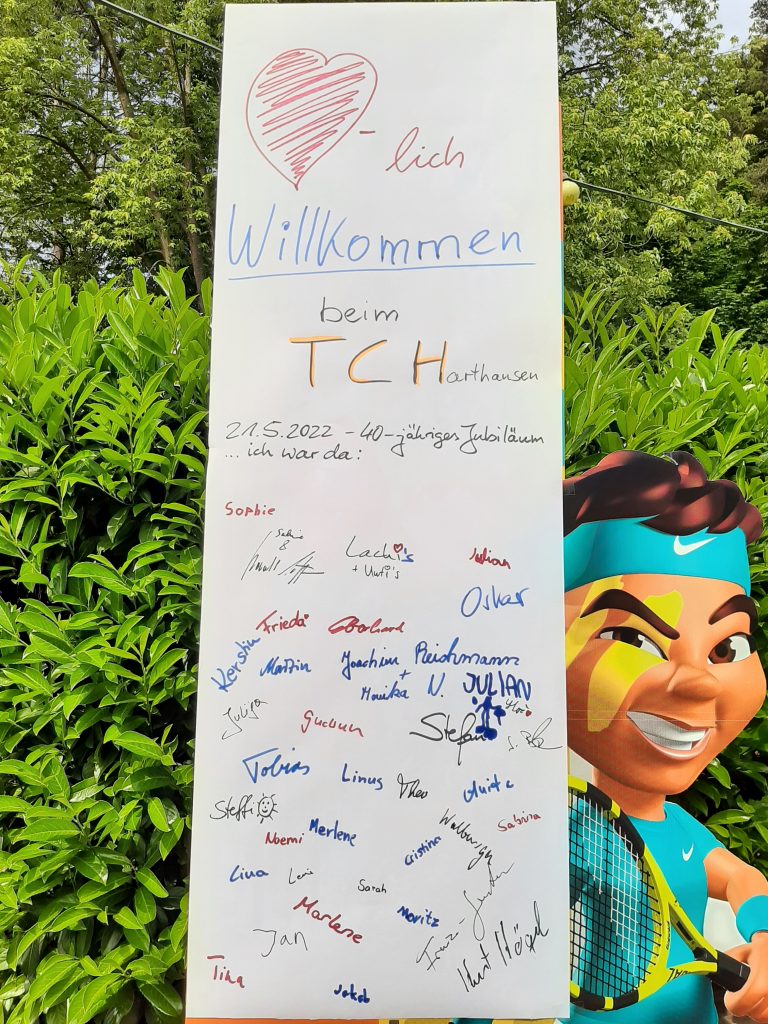 - lich
Willkommen
beim
TCHarthausen
21.5.2022 - 40-jähriges Jubiläum
... ich war da:
Sophie
Sabine
&
Lachi's
+ Uwi's
Julian
Oskar
Frieda
Eberhard
Kerstin
Martin
Joachim Reichmann
+
Monika N.
JULIAN
Gudrun
Stefan
Tobias
Linus
Theo
Anita
Steffi
Noemi
Merlene
Cristina
Walburga
Sabrina
Lina
Sarah
Marlene
Moritz
Jan
Tina
Jakob